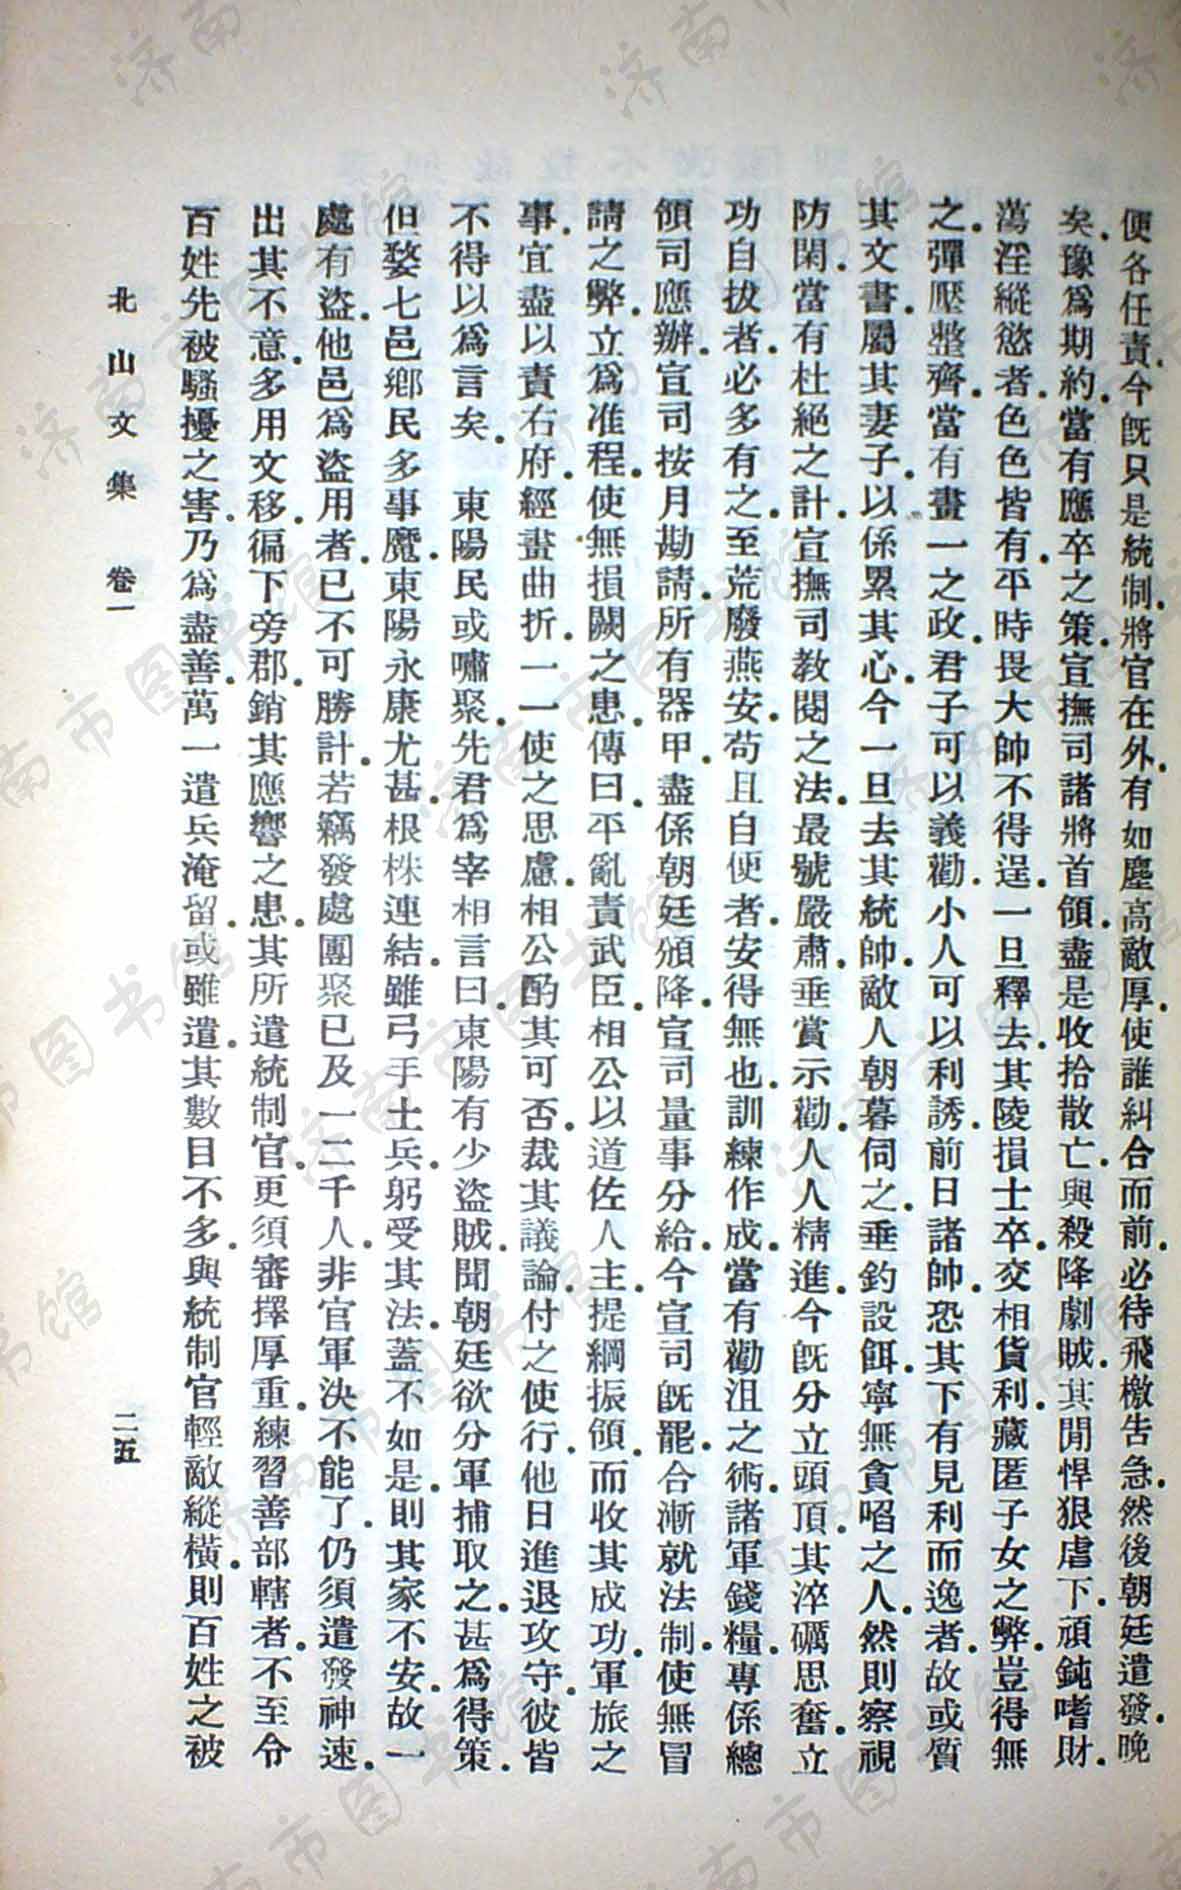 便各任責今旣只是統制將官在外有如塵高敵厚使誰糾合而前必待飛檄吿急然後朝廷遣發晚
矣豫爲期約當有應卒之策宣撫司諸將首領盡是收拾散亡與殺降劇賊其閒悍狠虐下頑鈍嗜財
蕩淫縱慾者色色皆有平時畏大帥不得逞一旦釋去其陵損士卒交相貨利藏匿子女之弊豈得無
之彈壓整齊當有畫一之政君子可以義勸小人可以利誘前日諸帥恐其下有見利而逸者故或質
其文書屬其妻子以係累其心今一旦去其統帥敵人朝暮伺之垂釣設餌寧無貪啗之人然則察視
防閑當有杜絕之計宣撫司教閱之法最號嚴肅垂賞示勸人人精進今旣分立頭項其淬礪思奮立
功自拔者必多有之至荒廢燕安苟且自便者安得無也訓練作成當有勸沮之術諸軍錢糧專係總
領司應辦宣司按月勘請所有器甲盡係朝廷頒降宣司量事分給今宣司旣罷合漸就法制使無冒
請之弊立爲准程使無損闕之患傳曰平亂責武臣相公以道佐人主提綱振領而收其成功軍旅之
事宜盡以責右府經畫曲折一一使之思慮相公酌其可否裁其議論付之使行他日進退攻守彼皆
不得以爲言矣　東陽民或嘯聚先君爲宰相言曰東陽有少盜賊聞朝廷欲分軍捕取之甚爲得策
但婺七邑鄕民多事魔東陽永康尤甚根株連結雖弓手土兵躬受其法蓋不如是則其家不安故一
處有盜他邑爲盜用者已不可勝計若竊發處團聚已及一二千人非官軍決不能了仍須遣發神速
出其不意多用文移徧下旁郡銷其應響之患其所遣統制官更須審擇厚重練習善部轄者不至令
百姓先被騷擾之害乃爲盡善萬一遣兵淹留或雖遣其數目不多與統制官輕敵縱橫則百姓之被
北山文集　卷一
二五
济南市图书馆